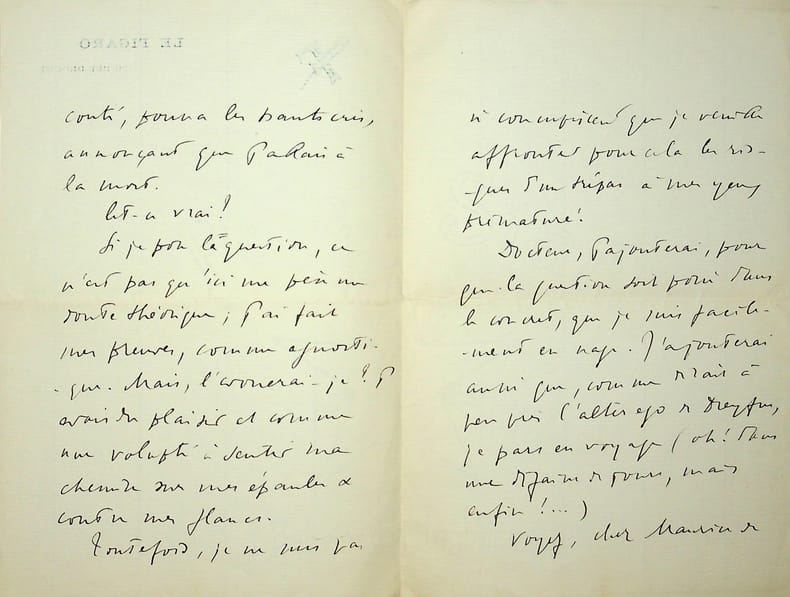 LE FIGARO
conté, poussa les hauts cris,
annonçant que j'allais à
la mort.
Est-ce vrai?
Si je pose la question, ce
n'est pas qu'ici me pèse un
doute théorique; j'ai fait
mes preuves, comme agnosti-
-que. Mais, l'avouerai-je? J'
avais du plaisir et comme
une volupté à sentir ma
chemise sur mes épaules &
contre mes flancs.
Toutefois, je ne suis pas
si concupiscent que je veuille
affronter pour cela les ris-
-ques d'un trépas à mes yeux
prématuré.
Docteur, j'ajouterai, pour
que la question soit posée dans
le concret, que je suis facile-
-ment en nage. J'ajouterai
aussi que, comme dirait à
peu près l'alter ego de Dreyfus,
je pars en voyage (oh! dans
une dizaine de jours, mais
enfin!...)
Voyez, cher Maurice de